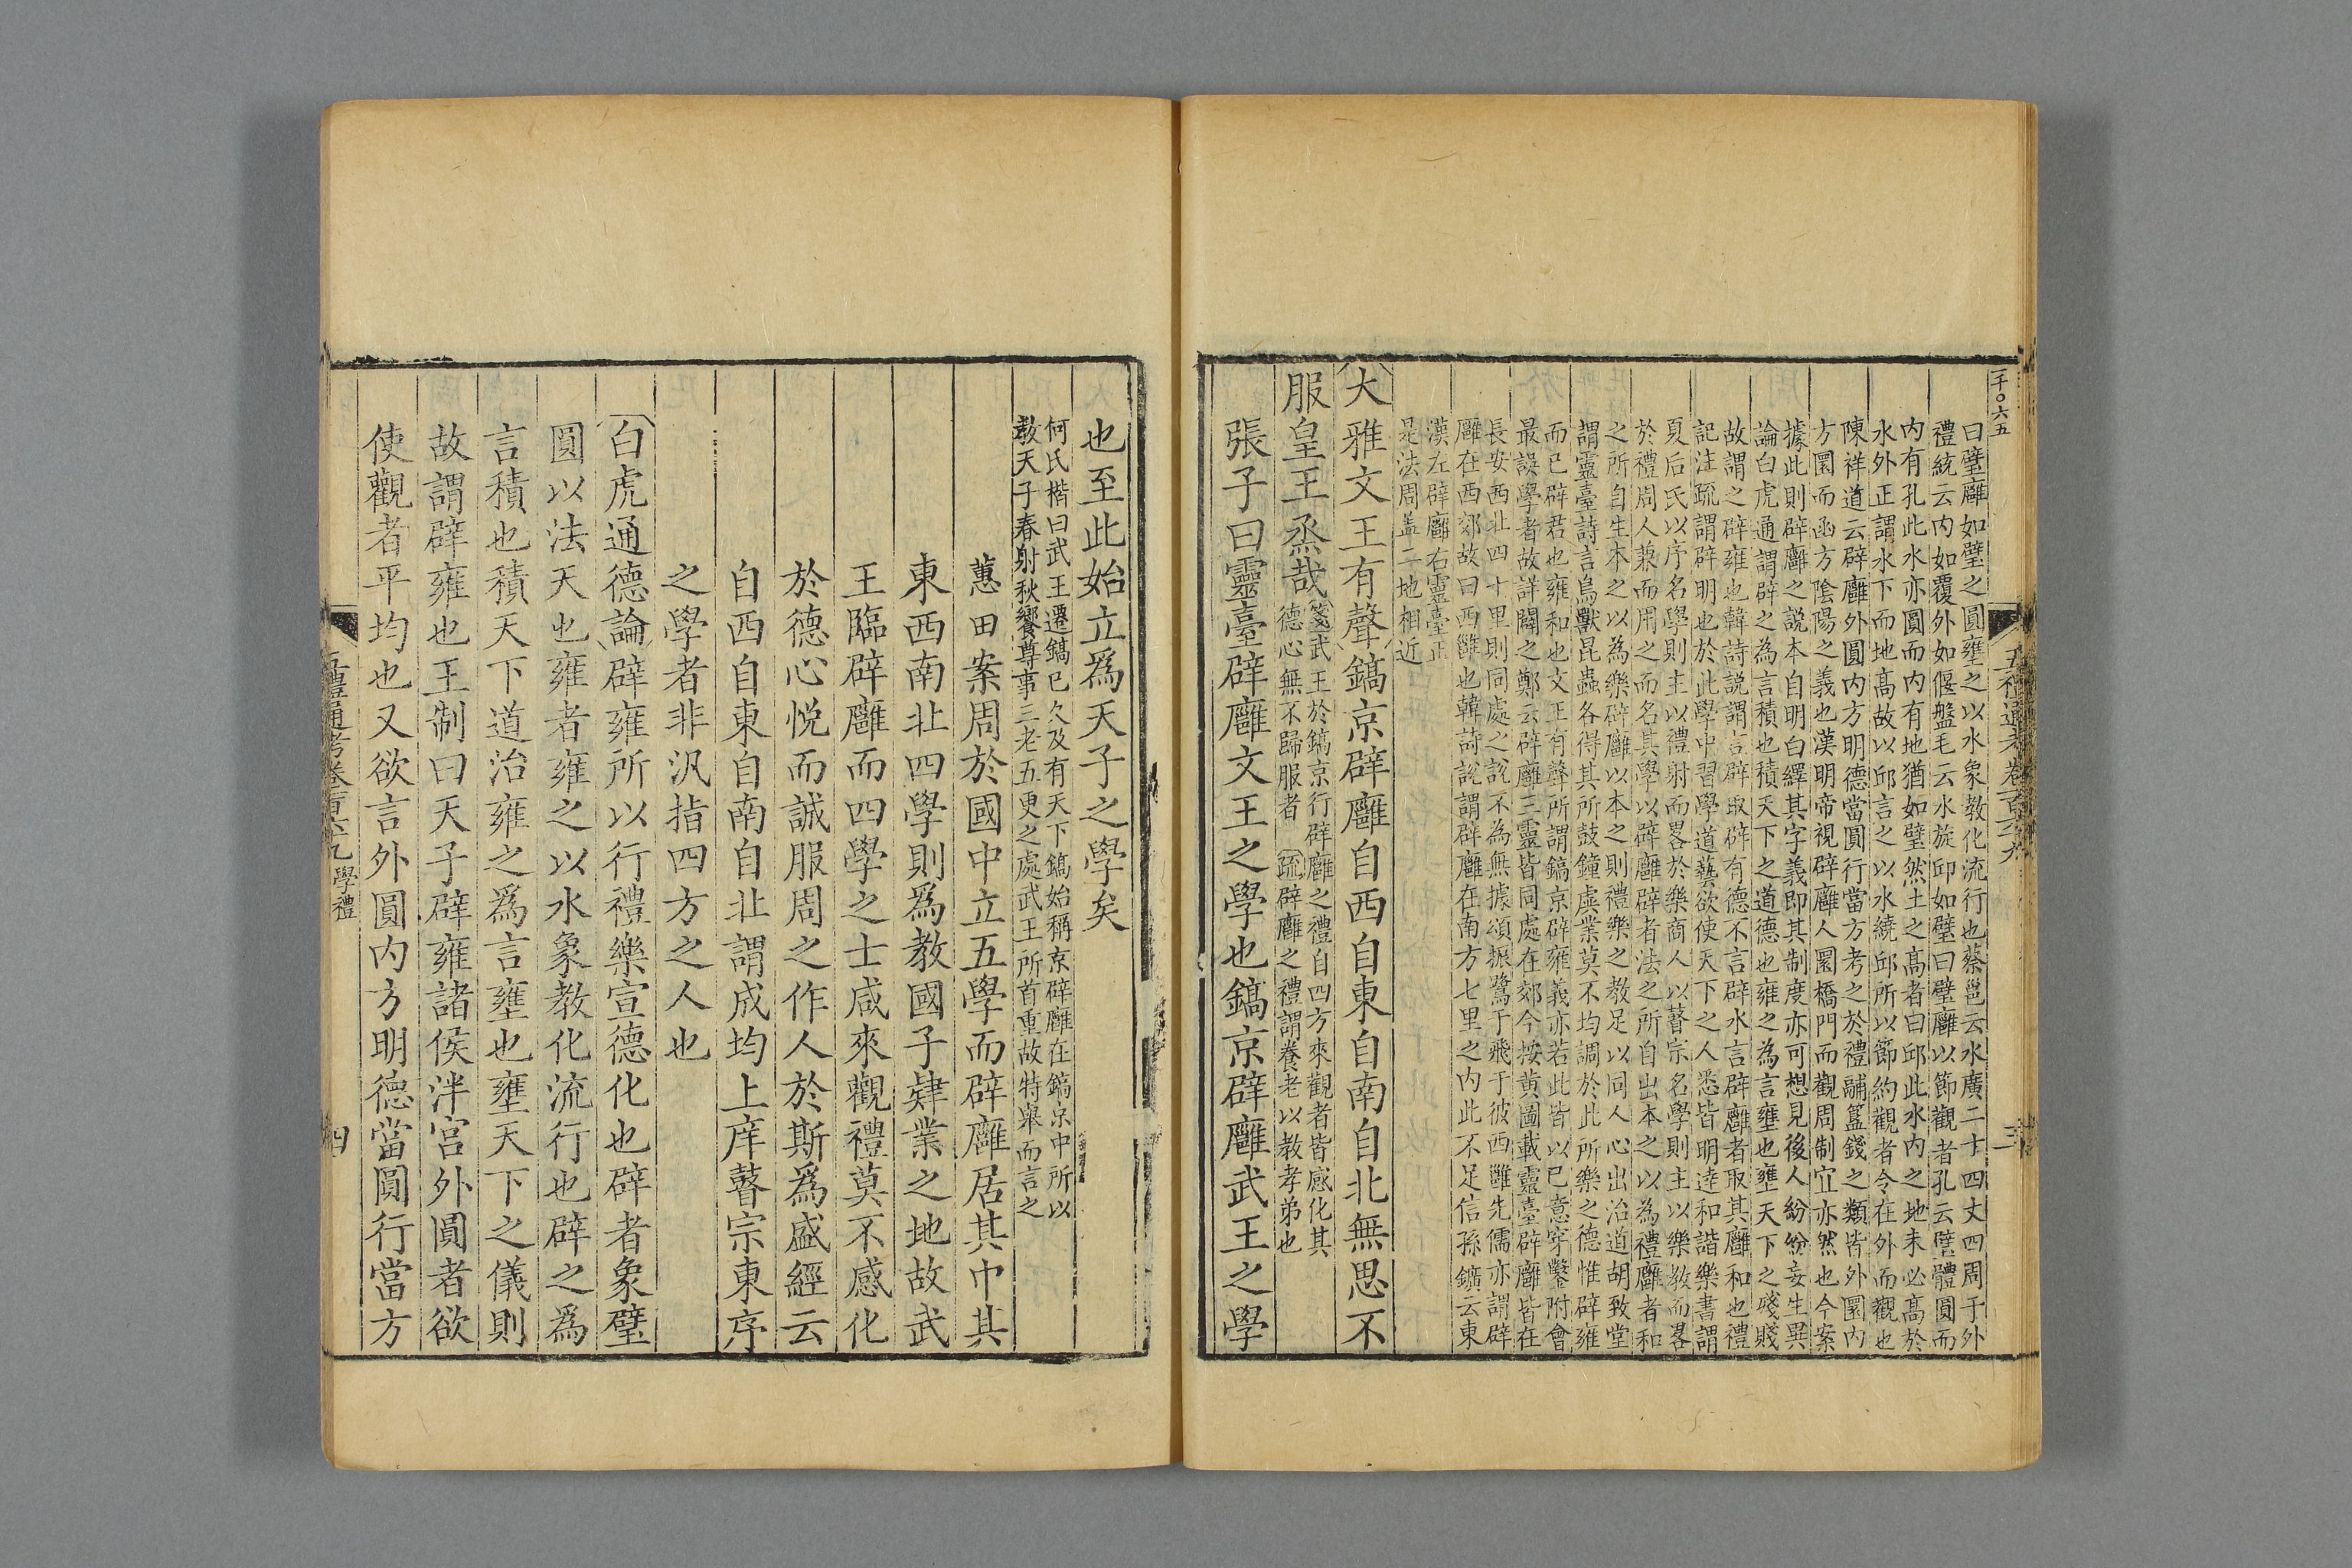 一千〇六五
五禮通考卷一百六十九
三
曰璧廱如璧之圓壅之以水象教化流行也蔡邕云水廣二十四丈四周于外
禮統云内如覆外如偃盤毛云水旋邱如璧曰璧廱以節觀者孔云璧體圓而
内有孔此水亦圓而内有地猶如璧然土之髙者曰邱此水内之地未必髙於
水外正謂水下而地髙故以邱言之以水繞邱所以節約觀者令在外而觀也
陳祥道云辟廱外圓内方明德當圓行當方考之於禮黼簋錢之類皆外圜内
方圜而函方陰陽之義也漢明帝視辟廱人圜橋門而觀周制宜亦然也今案
據此則辟廱之説本自明白繹其字義即其制度亦可想見後人紛紛妄生異
論白虎通謂辟之為言積也積天下之道德也雍之為言壅也壅天下之殘賤
故謂之辟雍也韓詩説謂言辟取辟有德不言辟水言辟廱者取其廱和也禮
記注疏謂辟明也於此學中習學道藝欲使天下之人悉皆明逹和諧樂書謂
夏后氏以序名學則主以禮射而畧於樂商人以瞽宗名學則主以樂教而畧
於禮周人兼而用之而名其學以辟廱辟者法之所自出本之以為禮廱者和
之所自生本之以為樂辟廱以本之則禮樂之教足以同人心出治道胡致堂
謂靈臺詩言鳥獸昆蟲各得其所鼓鐘虡業莫不均調於此所樂之德惟辟雍
而已辟君也雍和也文王有聲所謂鎬京辟雍義亦若此皆以已意穿鑿附會
最誤學者故詳闢之鄭云辟廱三靈皆同處在郊今按黄圖載靈臺辟廱皆在
長安西北四十里則同處之説不為無據頌振鷺于飛于彼西雝先儒亦謂辟
廱在西郊故曰西雝也韓詩説謂辟廱在南方七里之内此不足信孫鑛云東
漢左辟廱右靈臺正
是法周葢二地相近
大雅文王有聲鎬京辟廱自西自東自南自北無思不
服皇王烝哉箋武王於鎬京行辟廱之禮自四方來觀者皆感化其
德心無不歸服者　疏辟廱之禮謂養老以教孝弟也
張子曰靈臺辟廱文王之學也鎬京辟廱武王之學
也至此始立爲天子之學矣
何氏楷曰武王遷鎬已久及有天下鎬始稱京辟廱在鎬京中所以
教天子春射秋饗尊事三老五更之處武王所首重故特舉而言之
蕙田案周於國中立五學而辟廱居其中其
東西南北四學則爲教國子肄業之地故武
王臨辟廱而四學之士咸來觀禮莫不感化
於德心悦而誠服周之作人於斯爲盛經云
自西自東自南自北謂成均上庠瞽宗東序
之學者非汎指四方之人也
白虎通德論辟雍所以行禮樂宣德化也辟者象璧
圓以法天也雍者雍之以水象教化流行也辟之爲
言積也積天下道治雍之爲言壅也壅天下之儀則
故謂辟雍也王制曰天子辟雍諸侯泮宫外圓者欲
使觀者平均也又欲言外圓内方明德當圓行當方
五禮通考卷一百六十九學禮
四